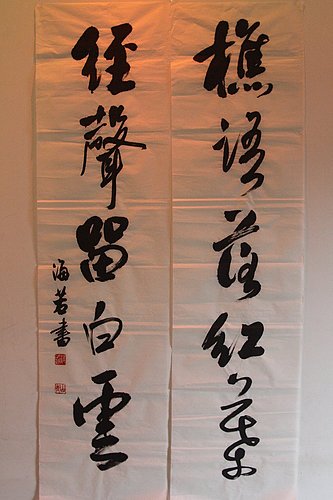 樵語落紅葉
經聲留白雲
海若書